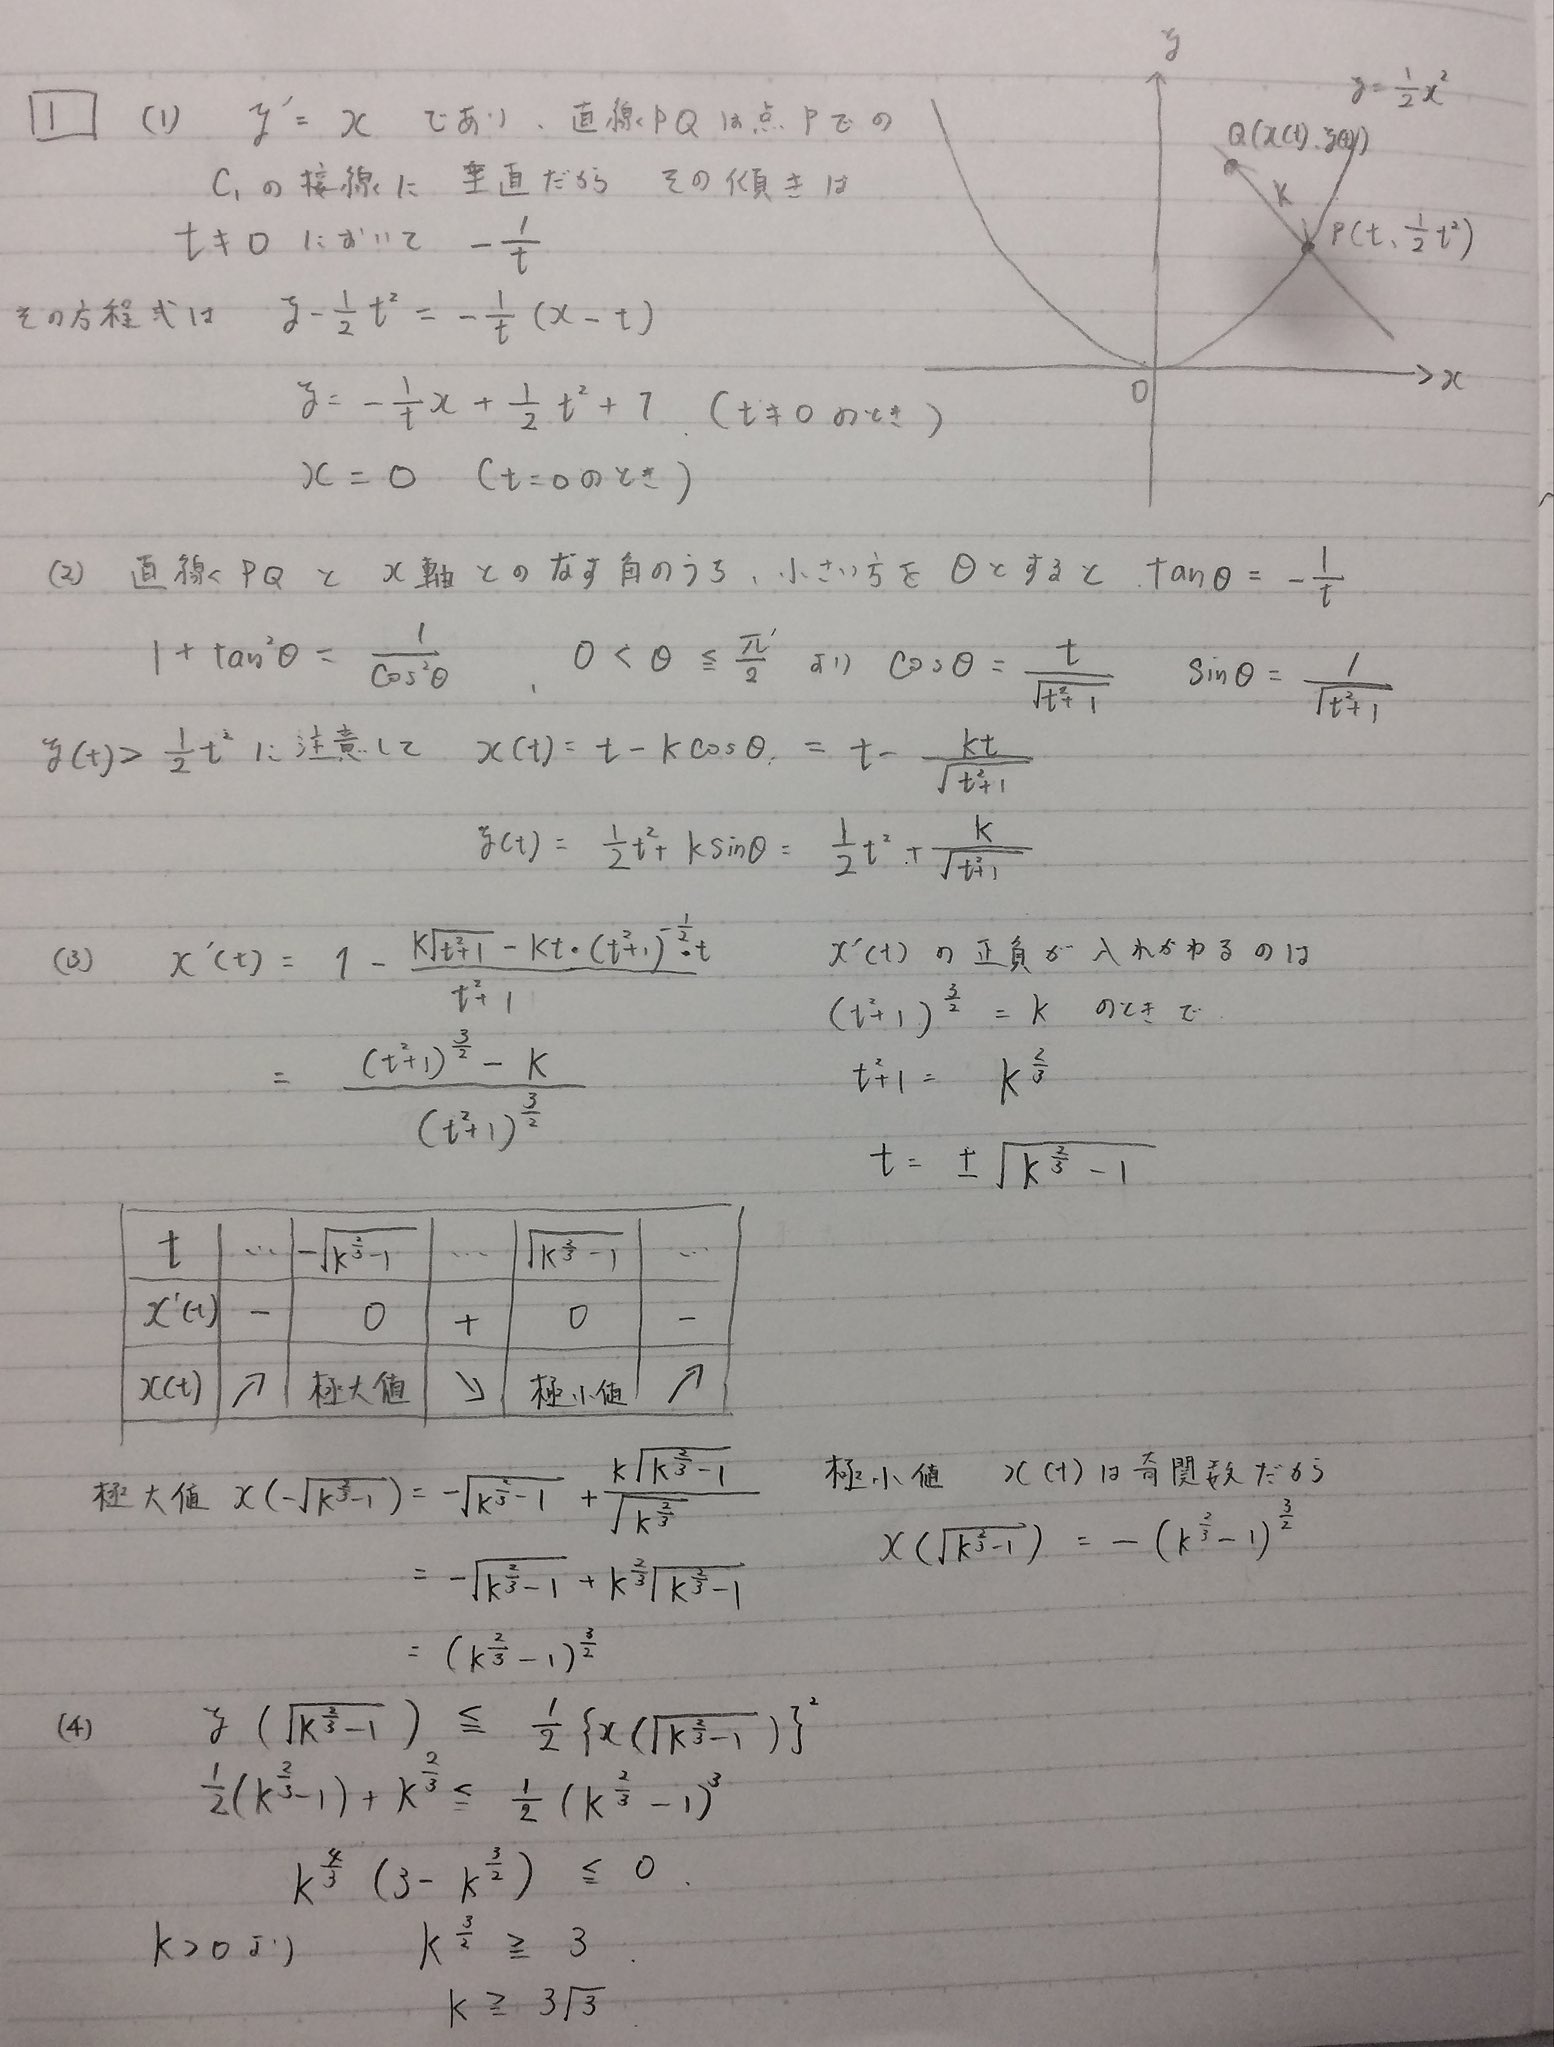 1 (1) y' = x であり、直線PQは点Pでの
C₁の接線に垂直だから その傾きは
t≠0 において -1/t
その方程式は y - 1/2 t² = -1/t (x - t)
y = -1/t x + 1/2 t² + 1 (t≠0のとき)
x = 0 (t=0のとき)
y
y = 1/2 x²
Q(x(t), y(t))
k
P(t, 1/2 t²)
O
x
(2) 直線PQとx軸とのなす角のうち、小さい方をθとすると tanθ = -1/t
1 + tan²θ = 1/cos²θ , 0 < θ ≦ π/2 より cosθ = t/√(t²+1) sinθ = 1/√(t²+1)
y(t) > 1/2 t² に注意して x(t) = t - k cosθ = t - kt/√(t²+1)
y(t) = 1/2 t² + k sinθ = 1/2 t² + k/√(t²+1)
(3) x'(t) = 1 - (k√(t²+1) - kt・(t²+1)^(-1/2)・t)/(t²+1)
= ((t²+1)^(3/2) - k)/(t²+1)^(3/2)
x'(t) の正負が入れかわるのは
(t²+1)^(3/2) = k のときで
t²+1 = k^(2/3)
t = ±√(k^(2/3) - 1)
t … -√(k^(2/3)-1) … √(k^(2/3)-1) …
x'(t) - 0 + 0 -
x(t) ↗ 極大値 ↘ 極小値 ↗
極大値 x(-√(k^(2/3)-1)) = -√(k^(2/3)-1) + k√(k^(2/3)-1)/√(k^(2/3))
= -√(k^(2/3)-1) + k^(2/3)√(k^(2/3)-1)
= (k^(2/3)-1)^(3/2)
極小値 x(t)は奇関数だから
x(√(k^(2/3)-1)) = -(k^(2/3)-1)^(3/2)
(4) y(√(k^(2/3)-1)) ≦ 1/2 {x(√(k^(2/3)-1))}²
1/2 (k^(2/3)-1) + k^(2/3) ≦ 1/2 (k^(2/3)-1)³
k^(4/3) (3 - k^(3/2)) ≦ 0.
k>0より k^(3/2) ≧ 3.
k ≧ 3√3